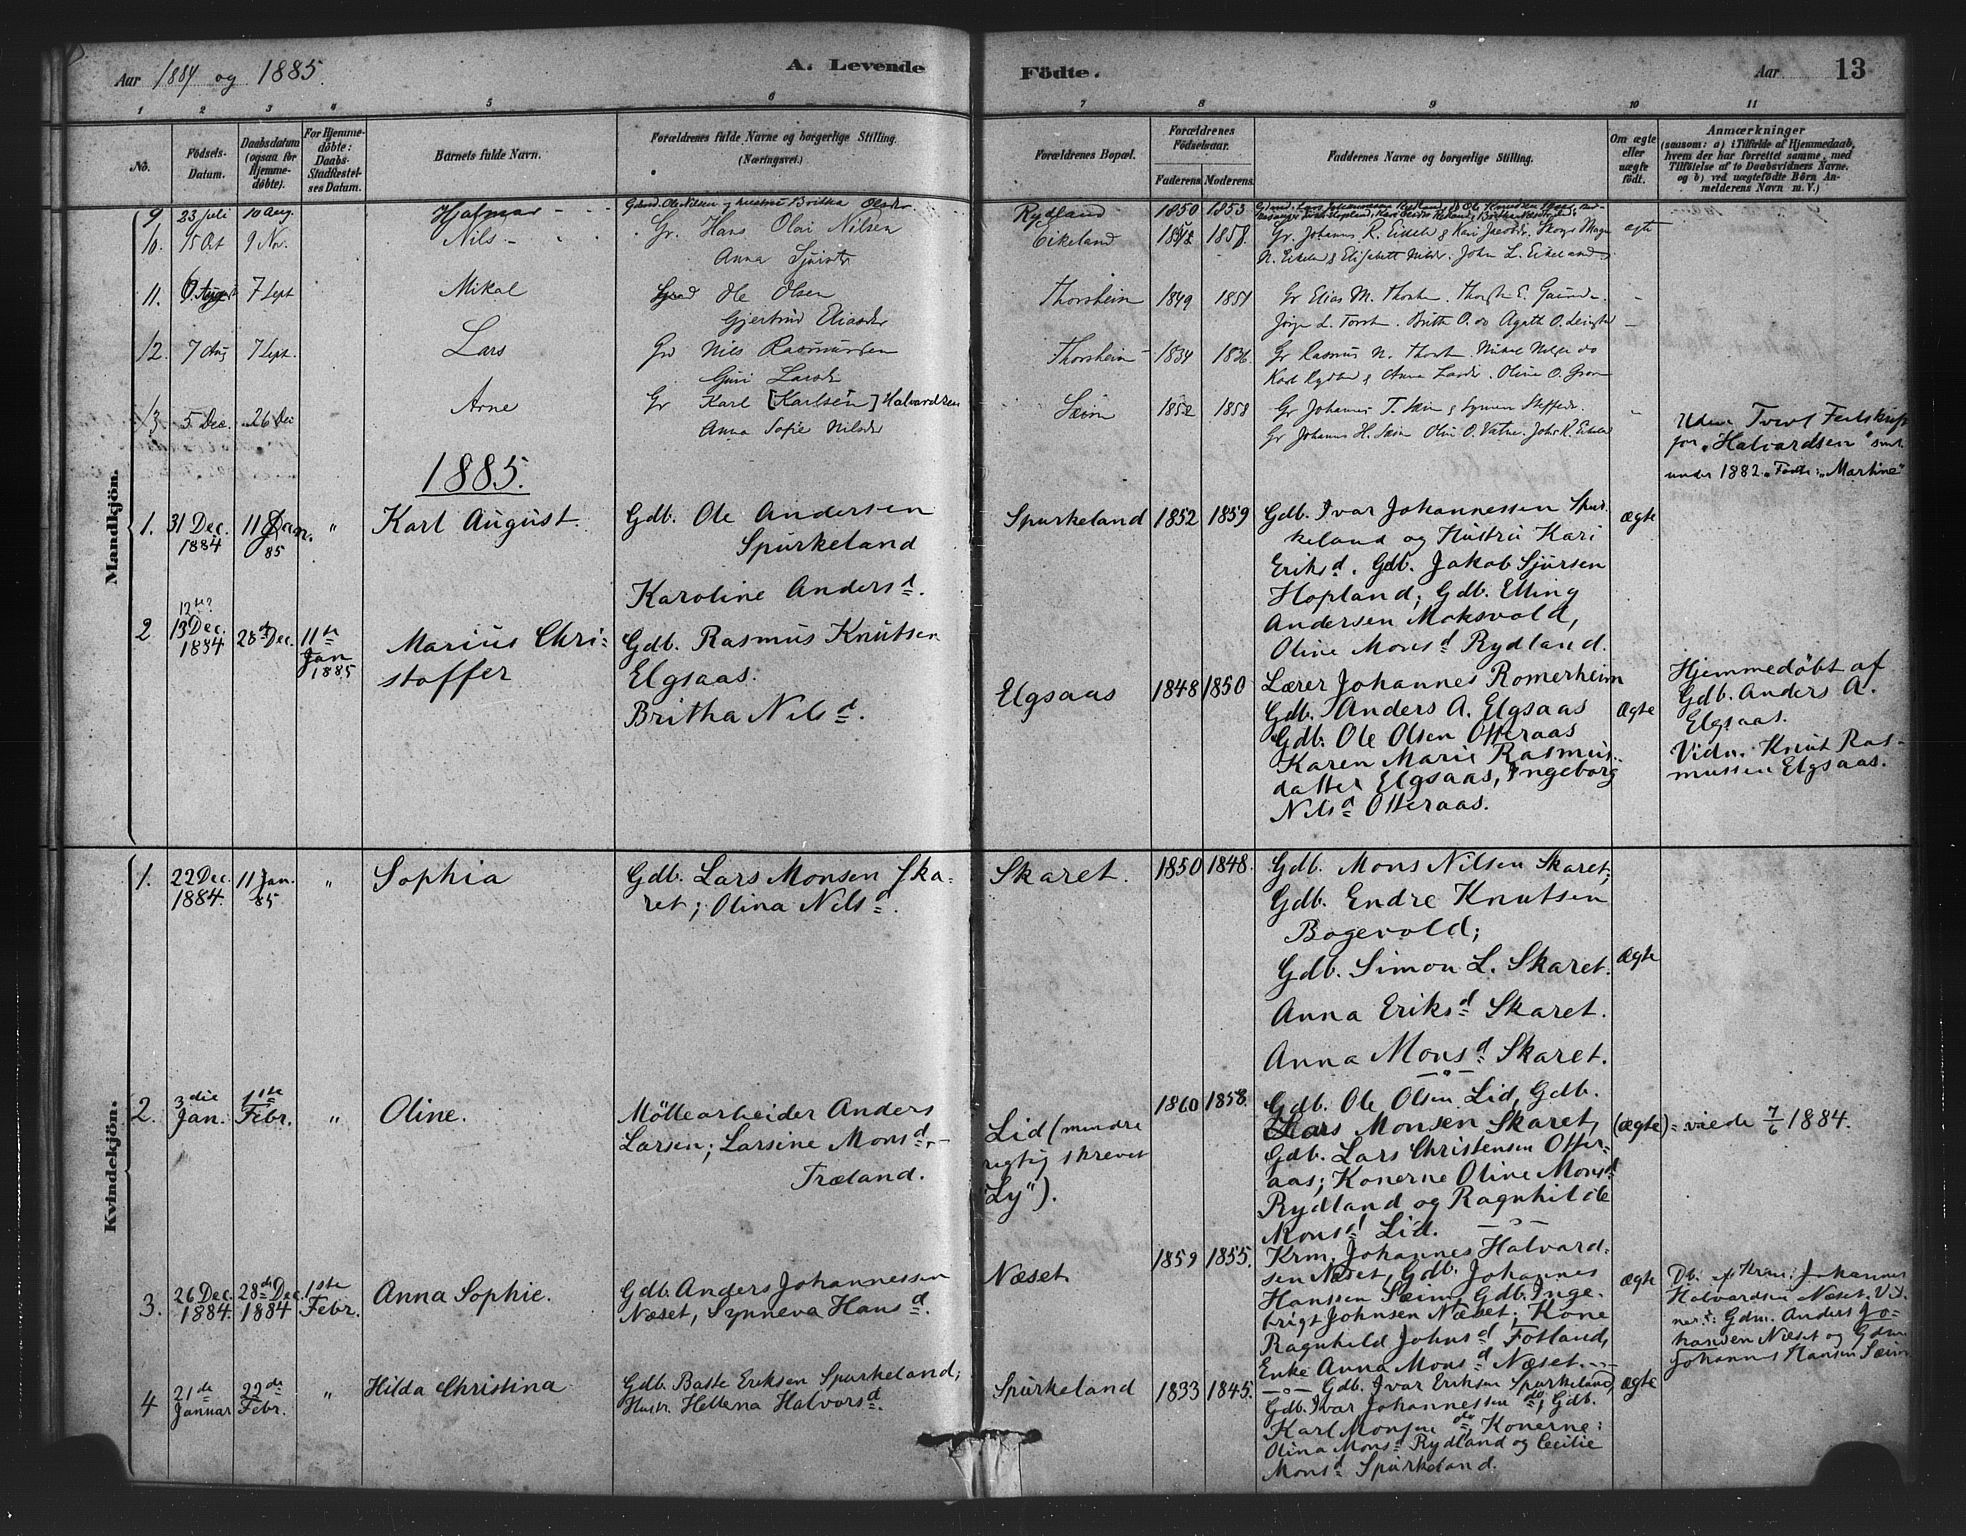 Aar 1884 og 1885.
A. Levende Födte.
Aar 13
1 2 3 4 5 6 7 8 9 10 11
No.
Födsels-Datum.
Daabsdatum (ogsaa for Hjemmedöbte).
For Hjemmedöbte: Daabs-Stadfæstelses Datum.
Barnets fulde Navn.
Forældrenes fulde Navne og borgerlige Stilling. (Næringsvei.)
Forældrenes Bopæl.
Forældrenes Födselsaar.
Faderens. Moderens.
Faddernes Navne og borgerlige Stilling.
Om ægte eller uægte födt.
Anmærkninger
(saasom: a) i Tilfælde af Hjemmedaab, hvem der har forrettet samme, med Tilföielse af to Daabsvidners Navne. og b) ved uægtefödte Börn Anmelderens Navn m. V.)
Mandkjön.
9. 23 Juli 10 Aug. Hjalmar
Ole Nilsen Britha Olsdr
Rydland 1850 1853
10. 15 Oct 9 Nov. Nils
Gr. Hans Olai Nilsen
Anna
Eikeland 1858.
Gr. Johannes R. Eikela & Kari
N. Eikela & Elisabeth Nilsdr. John L. Eikeland
ægte
11. 6 August 7 Sept Mikal
Ole Olsen
Gjertrud Eliasdr
Thorsheim 1849 1851
Gr Elias M. Thorsh.
12. 7 Aug 7 Sept. Lars
Gr Nils Rasmussen
Guri Larsdr
Thorsheim 1834 1836
Gr Rasmus N. Thorsh. Mikal Nilse do
13. 5 Dec. 26 Dec Arne
Gr Karl [Karlsen] Halvardsen
Anna Sofie Nilsdr
Sæim 1852 1858
Gr Johannes T. Sæim
Gr Johannes H. Sæim Olin O. Vatne. Joh. R. Eikela
Uden Tvivl Feilskrift
for „Halvardsen"
under 1882. Födte: „Martine"
1885.
1. 31 Dec. 1884 11 Jan. 85 " Karl August.
Gdb. Ole Andersen
Spurkeland
Karoline Andersd.
Spurkeland 1852 1859
Gdb. Ivar Johannessen Spur-
keland og Hustru Kari
Eriksd. Gdb. Jakob Sjursen
Hopland; Gdb. Elling
Andersen Moksvold,
Oline Monsd Rydland.
ægte
2 12te? 13 Dec. 1884 28de Dec. 11te Jan 1885
Marius Chri-
stoffer
Gdb. Rasmus Knutsen
Elgsaas.
Britha Nilsd.
Elgsaas 1848 1850
Lærer Johannes Romerheim
Gdb. Anders A. Elgsaas
Gdb. Ole Olsen Otteraas
Karen Marie Rasmus-
datter Elgsaas, Ingeborg
Nilsd Otteraas.
Ægte
Hjemmedöbt af
Gdb. Anders A.
Elgsaas.
Vidn. Knut Ras-
mussen Elgsaas.
Kvindekjön.
1. 22 Dec. 1884. 11 Jan. 85 " Sophia
Gdb. Lars Monsen Ska-
ret; Olina Nilsd.
Skaret. 1850 1848.
Gdb. Mons Nilsen Skaret;
Gdb. Endre Knutsen
Bogevold;
Gdb. Simon L. Skaret.
Anna Eriksd Skaret.
Anna Monsd Skaret.
ægte
2. 3die Jan. 1ste Febr. " Oline.
Möllearbeider Anders
Larsen; Larsine Monsd.
Træland.
Lid (mindre
rigtig skrevet
"Ly").
1860 1858.
Gdb. Ole Olsen Lid, Gdb.
Lars Monsen Skaret,
Gdb. Lars Christensen Otter-
aas; Konerne Oline Monsd
Rydland og Ragnhilde
Monsd Lid.
(ægte) = viede 7/6 1884.
3. 26 Dec. 1884. 28de Dec. 1884 1ste Febr. Anna Sophie.
Gdb. Anders Johannessen
Næset, Synneva Hansd.
Næset 1859 1855.
Krm. Johannes Halvard-
sen Næset, Gdb. Johannes
Hanssen Sæim, Gdb. Inge-
brigt Johnsen Næset; Kone
Ragnhild Johnsd Fotland,
Enke Anna Monsd Næset.
ægte
Db. af Krm. Johannes
Halvardsen Næset. Vid-
ner: Gdm. Anders Jo-
hansen Næset og Gdm
Johannes Hansen Sæim
4 21de Januar 22de Febr. " Hilda Christina
Gdb. Baste Eriksen Spurkeland;
Hustr. Hellena Halvorsd.
Spurkeland 1833 1845.
Gdb. Ivar Eriksen Spurkeland,
Gdb. Ivar Johannessen do; Gdb.
Karl Monsen do Konerne:
Olina Monsd Rydland og Cecilie
Monsd Spurkeland.
ægte